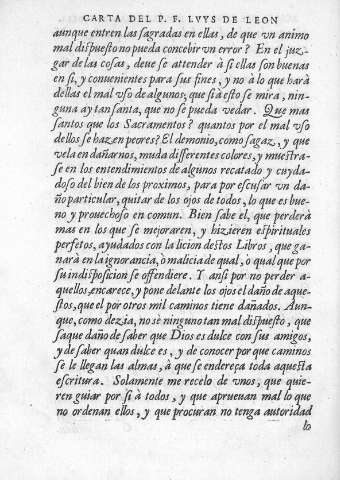 CARTA DEL P. F. LVYS DE LEON
aunque entren las sagradas en ellas, de que vn animo
mal dispuesto no pueda concebir vn error? En el juz-
gar de las cosas, deue se attender à si ellas son buenas
en si, y conuenientes para sus fines, y no à lo que harà
dellas el mal vso de algunos; que si à esto se mira, nin-
guna ay tan santa, que no se pueda vedar. Que mas
santos que los Sacramentos? quantos por el mal vso
dellos se hazen peores? El demonio, como sagaz, y que
vela en dañarnos, muda differentes colores, y muestra-
se en los entendimientos de algunos recatado y cuyda-
doso del bien de los proximos, para por escusar vn da-
ño particular, quitar de los ojos de todos, lo que es bue-
no y prouechoso en comun. Bien sabe el, que perderà
mas en los que se mejoraren, y hizieren espirituales
perfetos, ayudados con la licion destos Libros, que ga-
narà en la ignorancia, ò malicia de qual, o qual que por
su indisposicion se offendiere. Y ansi por no perder a-
quellos, encarece, y pone delante los ojos el daño de aque-
stos, que el por otros mil caminos tiene dañados. Aun-
que, como dezia, no sè ninguno tan mal dispuesto, que
saque daño de saber que Dios es dulce con sus amigos,
y de saber quan dulce es, y de conocer por que caminos
se le llegan las almas, à que se endereça toda aquesta
escritura. Solamente me recelo de vnos, que quie-
ren guiar por si à todos, y que aprueuan mal lo que
no ordenan ellos, y que procuran no tenga autoridad
lo